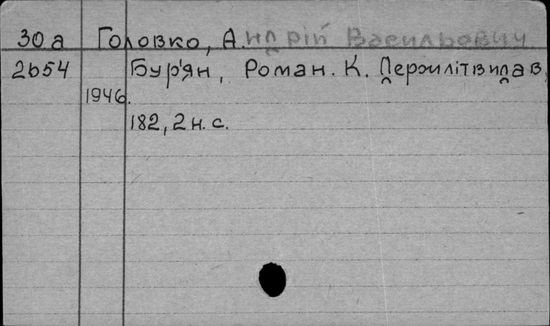 30а Головко, Андрій Васильович.
2654 Бур'ян, Роман. К. Держлітвидав,
1946.
182, 2 н. с.